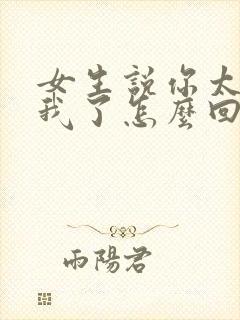 女生說你太
我了怎麼回
雨陽君